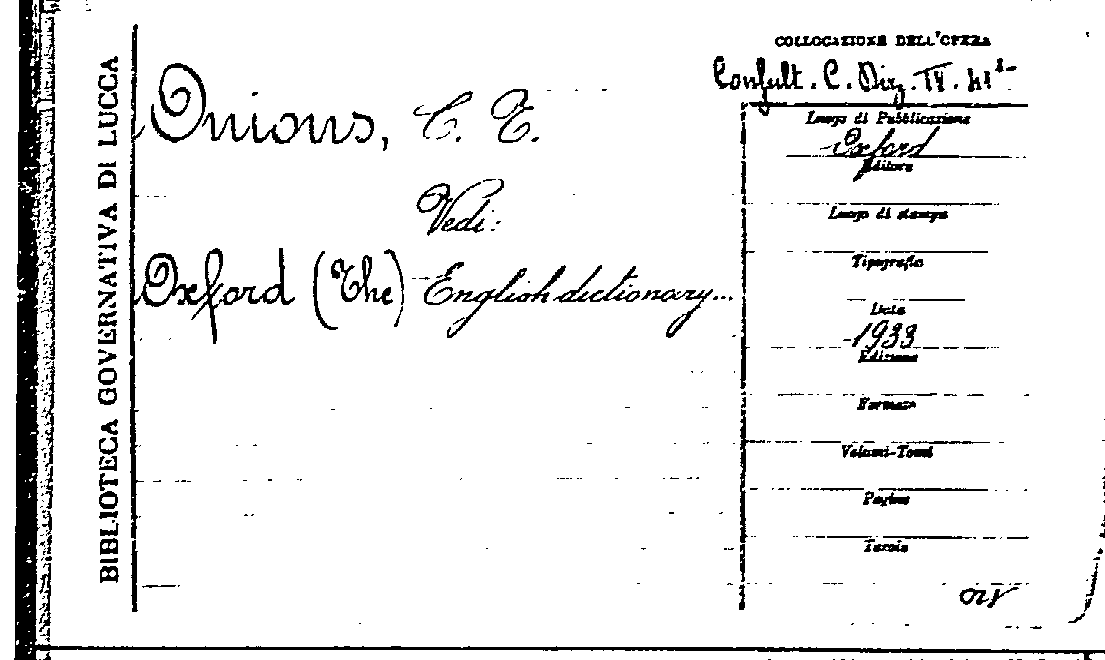 BIBLIOTECA GOVERNATIVA DI LUCCA
COLLOCAZIONE DELL'OPERA
Consult. C. Diz. IV.
Onions, C. T.
Vedi:
Oxford (The) English dictionary...
Luogo di Pubblicazione
Oxford
Editore
Luogo di stampa
Tipografia
Data
1933
Edizione
Formato
Volumi-Tomi
Pagine
Tavole